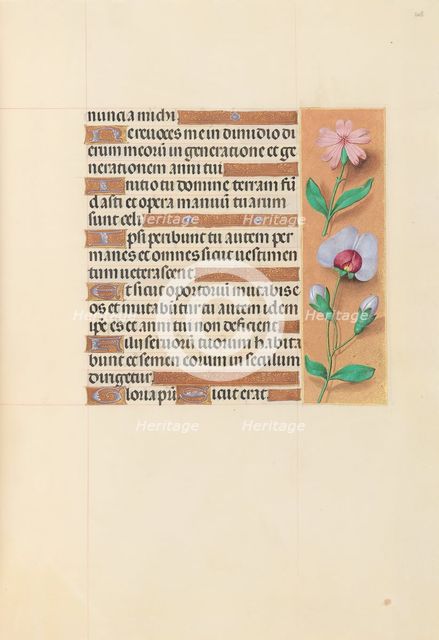 nuncia michi.
Ne revoces me in dimidio di
erum meorū in generatione et ge
nerationem anni tui
Initio tu domine terram fū
dasti et opera manuū tuarum
sunt celi
Ipsi peribunt tu autem per
manes et omnes sicut vestimen
tum veterascent
Et sicut opertoriū mutabis e
os et mutabūtur tu autem idem
ipe es et anni tui non deficient
Filii servorū tuorum habita
bunt et semen eorum in seculum
dirigetur.
Gloria pr̄i. Sicut erat.
Heritage Heritage
Heritage Heritage
Heritage Heritage
Heritage Heritage